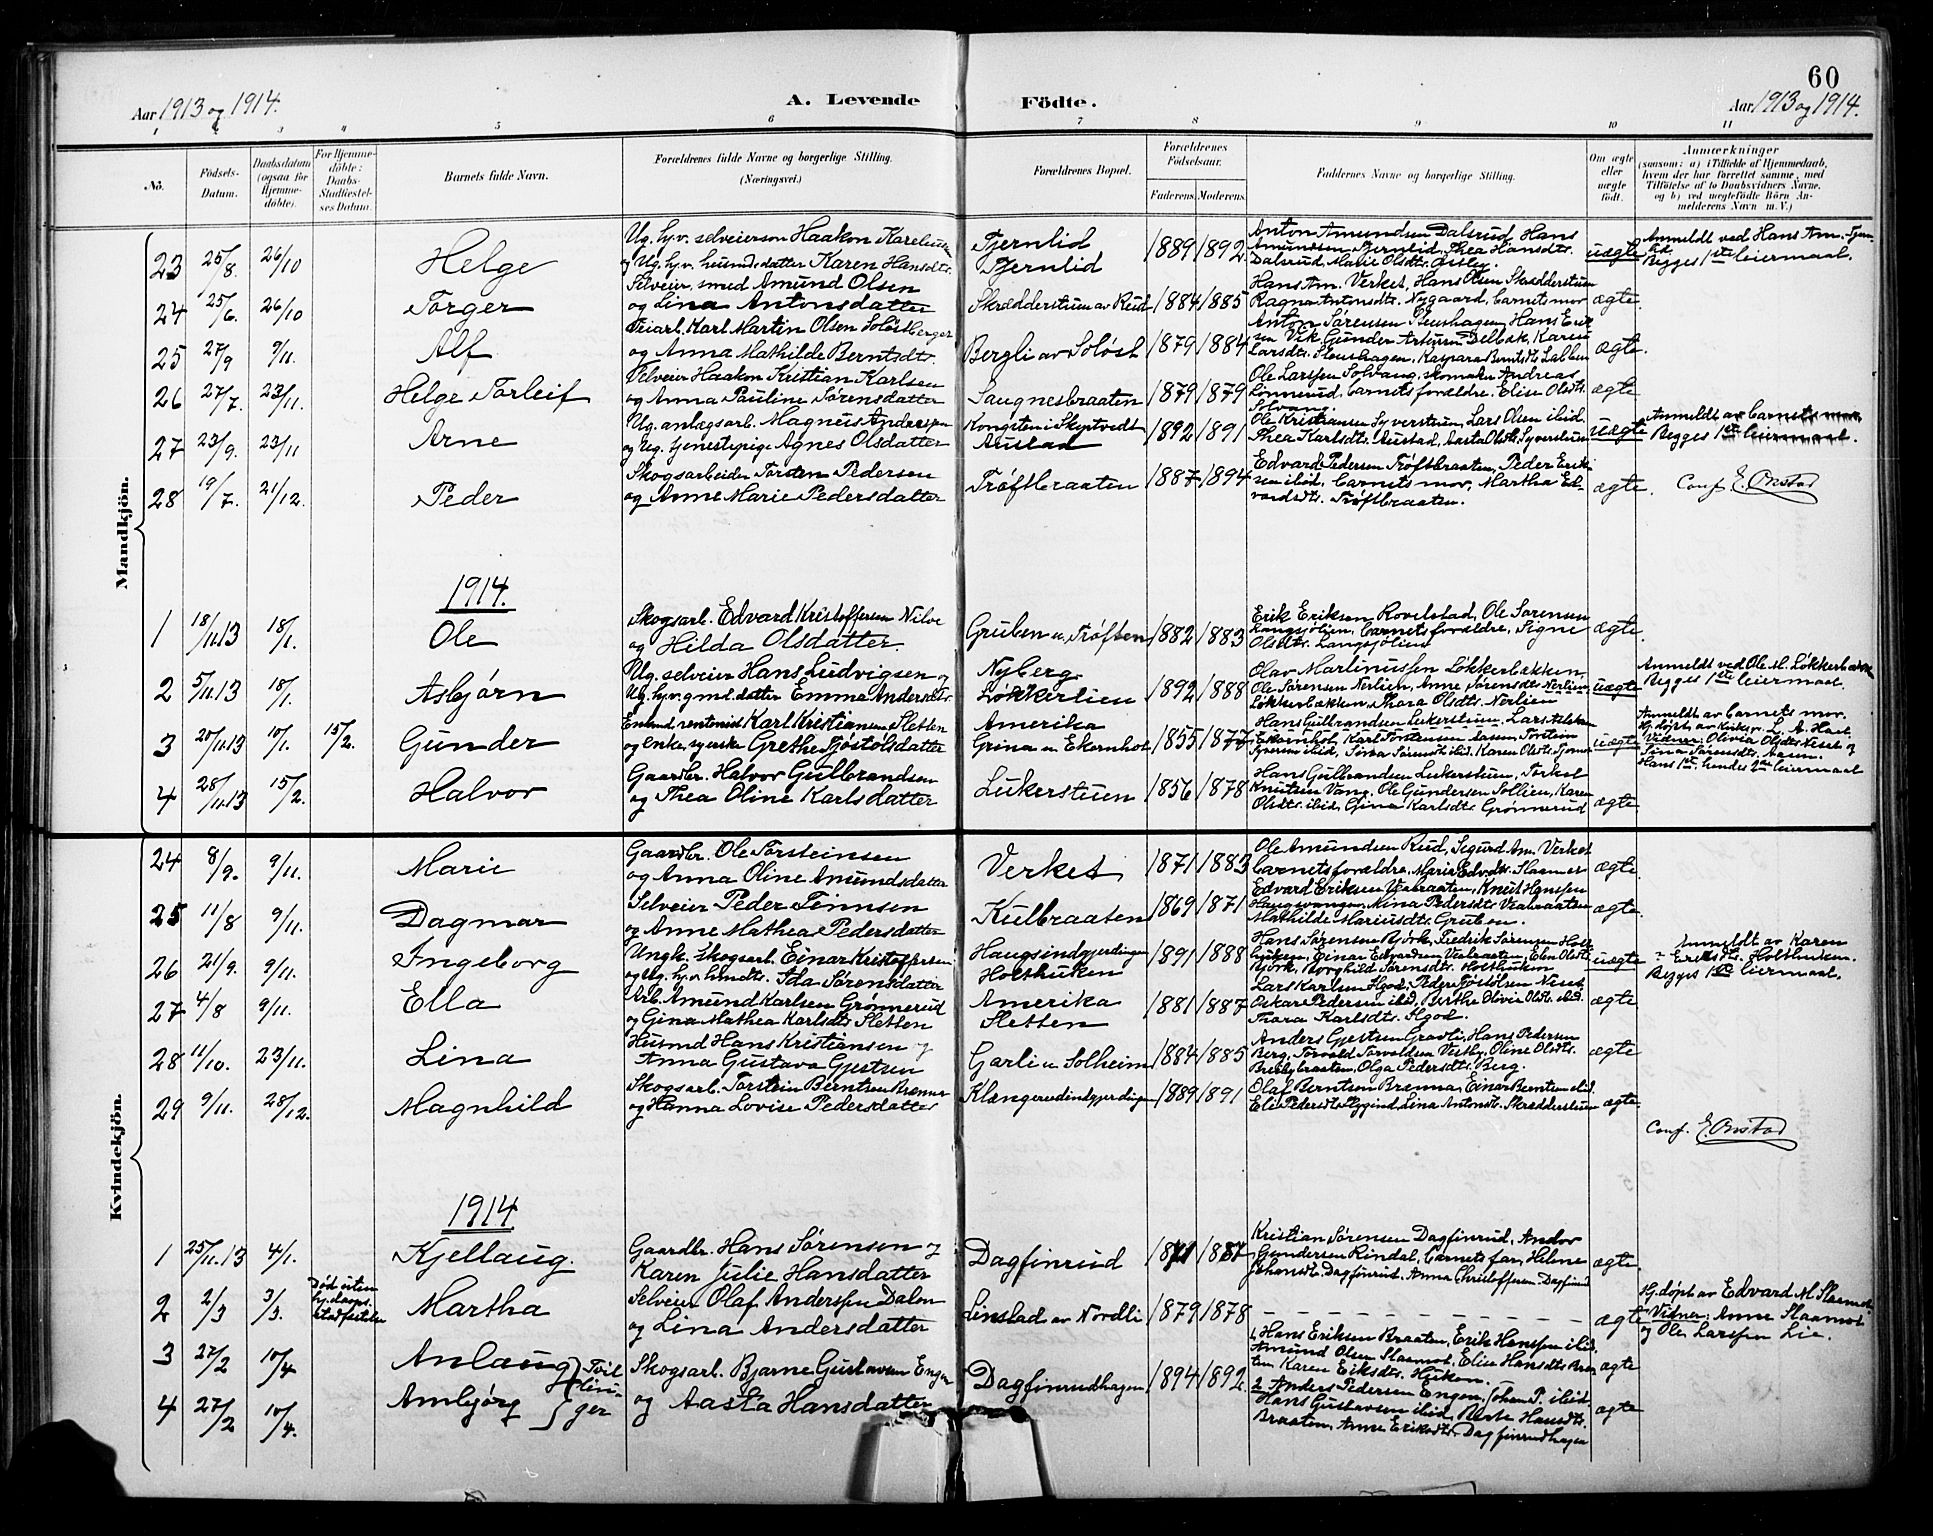 60
Aar 1913 og 1914.
A. Levende Födte.
Aar 1913 og 1914.
1 2 3 4 5 6 7 8 9 10 11
No.
Födsels-Datum.
Daabsdatum (ogsaa for Hjemme-döbte).
For Hjemme-döbte: Daabs-Stadfæstel-ses Datum.
Barnets fulde Navn.
Forældrenes fulde Navne og borgerlige Stilling. (Næringsvei.)
Forældrenes Bopæl.
Forældrenes Födselsaar.
Faderens. Moderens.
Faddernes Navne og borgerlige Stilling.
Om ægte eller uægte födt.
Anmærkninger
(saasom: a) i Tilfælde af Hjemmedaab, hvem der har forrettet samme, med Tilföielse af to Daabsvidners Navne, og b) ved uægtefödte Börn An-melderens Navn m. V.)
Mandkjön.
23 25/8. 26/10 Helge
Ug. hv. selveierson Haakon
og Ug. hv. husmdsdatter Karen Hansdtr.
Tjernlid
Tjernlid
1889 1892
Anton Amundsen Dalsrud, Hans
Amundsen Tjernlid, Thea Hansdtr.
Dalsrud, Marie Olsdtr.
uægte
Anmeldt ved Hans Am.
Begges 1ste leiermaal.
24 25/6. 26/10 Torger
Selveier, smed Amund Olsen
og Lina Antonsdatter
Skrædderstuen av Rud 1884 1885
Hans Am. Verket, Hans Olsen Skrædderstuen
Ragna Antonsdtr. Nygaard, barnets mor
ægte
25 27/9 9/11. Alf
Karl Martin Olsen
og Anna Mathilde Berntsdtr.
Bergli av Soløst 1879 1884
Anton Sørensen Stenshagen, Hans Erik-
sen Vik, Gunder Delbæk, Karen
Larsdtr. Stenshagen, Kaspara Berntsdtr.
ægte.
26 27/7. 23/11. Helge Torleif
Selveier Haakon Kristian Karlsen
og Anna Pauline Sørensdatter
Saugnesbraaten 1879 1879
Ole Larssen Solvang, skomaker Andreas
Linnerud, barnets forældre, Elise Olsdtr.
Solvang.
ægte
27 23/9. 23/11 Arne
Ug. anlægsarb. Magnus Anderssen
og Ug. tjenestepige Agnes Olsdatter
Kongsten i Skiptvedt
Austad
1892 1891
Ole Kristiansen Syverstuen, Lars Olsen ibid.
Thea Karlsdtr. Austad, Aasta Olsdtr. Syverstuen
uægte
Anmeldt av barnets mor
Begges 1ste leiermaal.
28 19/7. 21/12. Peder
Skogsarbeider Torsten Pedersen
og Anne Marie Pedersdatter
Trøftbraaten 1887 1894
Edvard Pedersen Trøftbraaten, Peder Erik-
sen ibid, barnets mor, Martha Ed-
vardsdtr. Trøftbraaten.
ægte.
Conf. E. Onstad
1914.
1 18/11.13 18/1. Ole
Skogsarb. Edvard Kristoffersen
og Hilda Olsdatter.
Gruben u. Trøften 1882 1883
Erik Eriksen Rovelstad, Ole Sørensen
Langsjølien, barnets forældre, Signe
Olsdtr. Langsjølien
ægte.
2 5/11.13 18/1. Asbjørn
Ug. selveier Hans Ludvigsen og
Ug. hv. gmd. datter Emma Andersdtr.
Nyberg
Løkkerlien
1892 1888
Olav Martinussen Løkkerbakken,
Ole Sørensen Nerlien, Anne Sørensdtr. Nerlien
Løkkerbakken, Thora Olsdtr. Nerlien
uægte
Anmeldt ved Ole M. Løkkerbakken
Begges 1ste leiermaal.
3 20/11.13 10/1. 15/2. Gunder
Enkmd rentenist Karl Kristiansen Sletten
og enke, syerske Grethe Tjøstolsdatter
Amerika
Grina u Ekornhol
1855 1877
Hans Gulbrandsen Lukerstuen, Lars
Ekornhol, Karl Torstensen Aasen, Torstein
ibid, Karen Olsdtr.
uægte
Anmeldt av barnets mor.
Hj. døpt av kirkesr. L. A. Hast
Vidner: Olivia Olsdtr. og
Tina Sørensdtr. Aasen.
Hans 1ste hendes 2det leiermaal
4 28/11.13 15/2. Halvor
Gaardbr. Halvor Gulbrandsen
og Thea Oline Karlsdatter
Lukerstuen 1856 1878
Hans Gulbrandsen Lukerstuen, Torkel
Knutsen Vang, Ole Gundersen Sollien, Karen
Olsdtr. ibid, Gina Karlsdtr. Grønnerud
ægte
Kvindekjön.
24 8/9. 9/11. Marie
Gaardbr. Ole Torsteinsen
og Anna Oline Amundsdatter
Verket 1871 1883
Ole Amundsen Rud, Sigurd Am. Verket
barnets forældre, Marie Edvdtr.
ægte.
25 11/8 9/11. Dagmar
Selveier Peder Jennsen
og Anne Mathea Pedersdatter
Kulbraaten 1869 1871
Edvard Eriksen Veabraaten, Knut Hanssen
Haugsvangen, Mina Pedersdtr. Veabraaten
Mathilde Mariusdtr. Gruben.
ægte.
26 21/9. 9/11. Ingeborg
Ungk. Skogsarb. Einar Kristoffersen
og Ug. hv. husmdtr. Ida Sørensdatter
Haugsindgjerdingen
Holthuken
1891 1888
Hans Sørensen Bjørk, Fredrik Sørensen Holt-
huken, Einar Edvardsen Veabraaten, Elen Olsdtr.
Bjørk, Borghild Sørensdtr. Holthuken
uægte
Anmeldt av Karen
Eriksdtr. Holthuken.
Begges 1ste leiermaal.
27 4/8 9/11. Ella
Arb. Amund Karlsen Grønnerud
og Gina Mathea Karlsdtr. Sletten
Amerika
Sletten
1881 1887
Lars Karlsen Hgod, Peder Tjøstolsen
Oskar Pedersen ibid, Berthe Olivia Olsdtr. ibid.
Thora Karlsdtr. Hgod.
ægte
28 11/10. 23/11. Lina
Husmd Hans Kristiansen og
Anna Gustava Gjestrum
Garli u Solheim 1884 1885
Anders Gjestrum Gravli, Hans Pedersen
Berg, Torvald Torvaldsen Vestby, Oline Olsdtr.
Brenbybraaten, Olga Pedersdtr. Berg.
ægte
29 9/11. 28/12. Magnhild
Skogsarb. Torstein Berntsen Brenna
og Hanna Lovise Pedersdatter
Klangerudindgjerdingen 1889 1891
Olaf Berntsen Brenna, Einar Berntsen ibid.
Eli Pedersdtr. Lina Antonsdtr. Skrædderstuen
ægte
Conf. E. Onstad
1914
1 25/11.13 4/1. Kjellaug.
Gaardbr. Hans Sørensen og
Karen Julie Hansdatter
Dagfinrud
Kristian Sørensen Dagfinrud, Andor
Gundersen Rindal, barnets far, Helene
Johansdtr. Dagfinrud, Anna Christoffersen Dagfinrud
ægte.
2 2/3 3/3. Død uten hj. daaps stadfæstelse Martha
Selveier Olaf Anderssen Dalen
og Lina Andersdatter
Linstad av Nordli 1879 1878
ægte
Hj. døpt av Edvard M.
Vidner: Anne
og Ole Larssen Lie.
3 27/2 10/4 Anlaug
4 27/2 10/4. Ambjørg
Tvillinger
Skogsarb. Bjarne Gustavsen Engen
og Aasta Hansdatter
Dagfinrudhagen 1894 1892.
1, Hans Eriksen Braaten, Erik Hanssen ibid.
Amund Olsen Elise Hansdtr. Braa-
ten Karen Eriksdtr. Huken.
ægte
2 Anders Pedersen Engen, Johan P. ibid.
Hans Gustavsen ibid, Berte Hansdtr.
Braaten, Anne Eriksdtr. Dagfinrudhagen
ægte